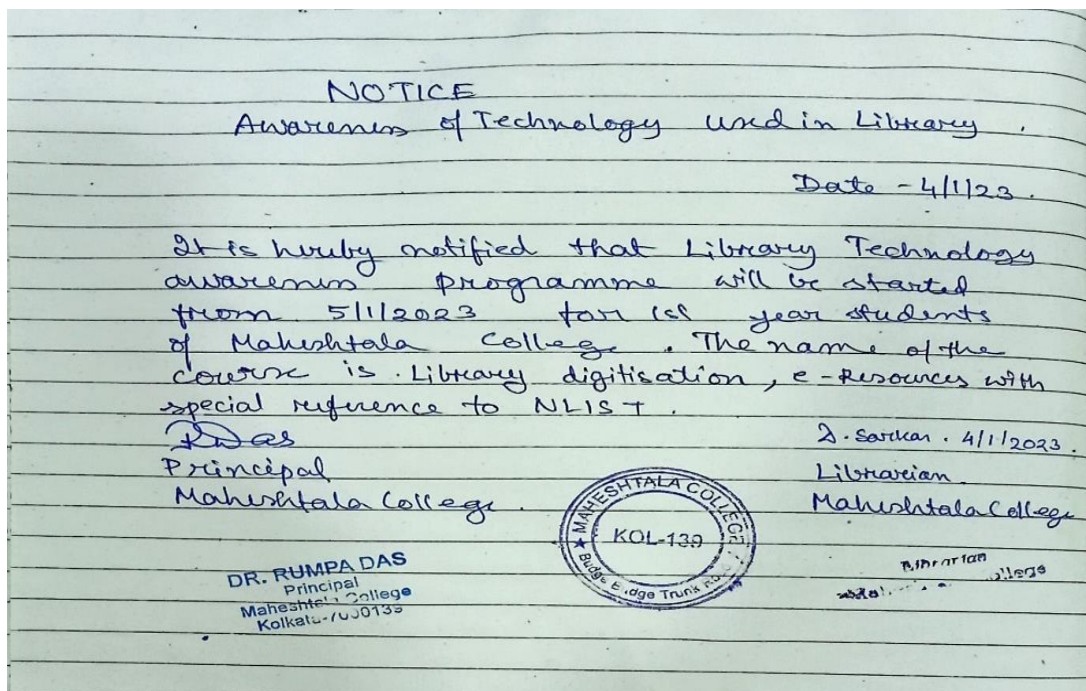 NOTICE
Awareness of Technology used in Library.
Date - 4/1/23.
It is hereby notified that Library Technology
awareness programme will be started
from 5/1/2023 for 1st year students
of Maheshtala College. The name of the
course is. Library digitisation, e-Resources with
special reference to NLIST.
RDas
Principal
Maheshtala College.
D. Sarkar. 4/1/2023.
Librarian
Maheshtala College
MAHESHTALA COLLEGE
KOL-139
Budge Budge Trunk Road
DR. RUMPA DAS
Principal
Maheshtala College
Kolkata-7000139
Librarian
College